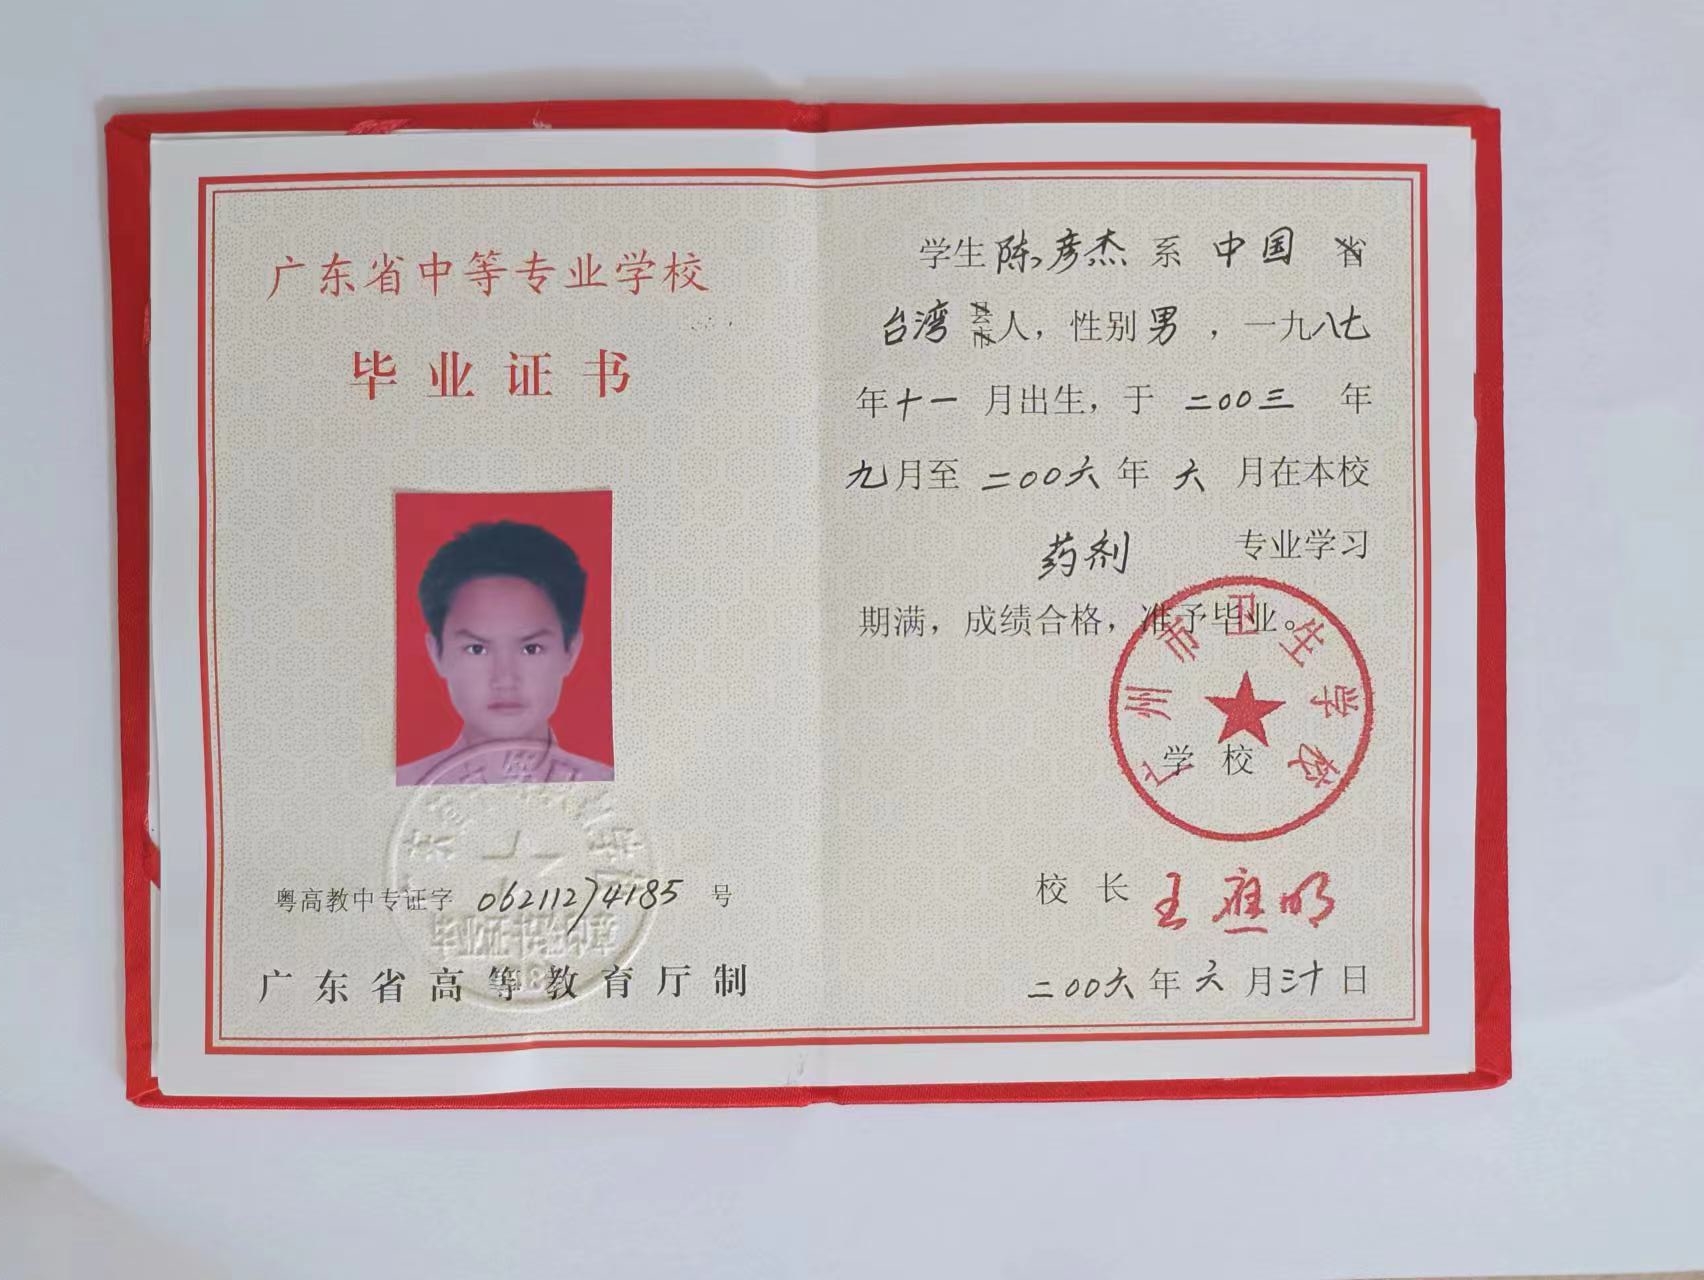 广东省中等专业学校
毕业证书
粤高教中专证字 06211274185 号
广东省高等教育厅制
学生陈彦杰系 中国 省
台湾 县市人，性别男，一九八七
年十一月出生，于 二00三 年
九月至 二00六 年 六 月在本校
药剂 专业学习
期满，成绩合格，准予毕业。
广州市卫生学校
学 校
校 长 王应明
二00六年六月三十日